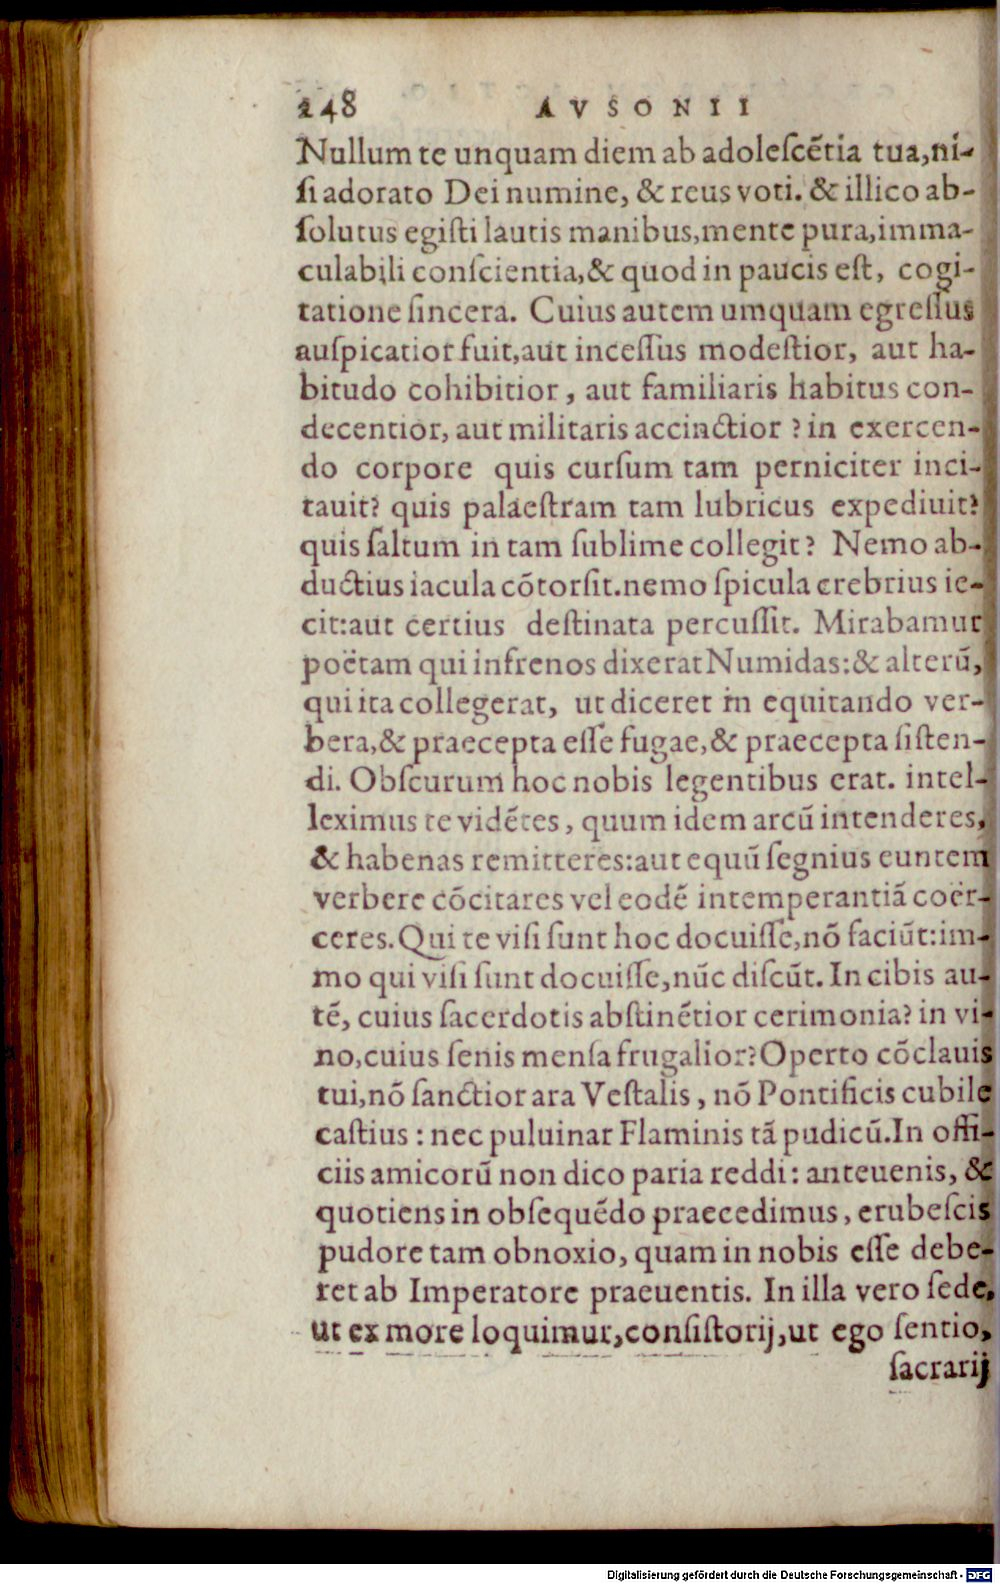 248 AVSONII
Nullum te unquam diem ab adolescẽtia tua,ni-
ſi adorato Dei numine, & reus voti. & illico ab-
ſolutus egiſti lautis manibus,mente pura,imma-
culabili conſcientia,& quod in paucis eſt, cogi-
tatione ſincera. Cuius autem umquam egreſſus
auſpicatior fuit,aut inceſſus modeſtior, aut ha-
bitudo cohibitior, aut familiaris habitus con-
decentior, aut militaris accinctior ? in exercen-
do corpore quis curſum tam perniciter inci-
tauit? quis palaeſtram tam lubricus expediuit?
quis ſaltum in tam ſublime collegit? Nemo ab-
ductius iacula cõtorſit.nemo ſpicula crebrius ie-
cit:aut certius deſtinata percuſſit. Mirabamur
poëtam qui infrenos dixerat Numidas:& alterũ,
qui ita collegerat, ut diceret in equitando ver-
bera,& praecepta eſſe fugae,& praecepta ſiſten-
di. Obſcurum hoc nobis legentibus erat. intel-
leximus te vidẽtes, quum idem arcũ intenderes,
& habenas remitteres:aut equũ ſegnius euntem
verbere cõcitares vel eodẽ intemperantiã coër-
ceres.Qui te viſi ſunt hoc docuiſſe,nõ faciũt:im-
mo qui viſi ſunt docuiſſe,nũc diſcũt. In cibis au-
tẽ, cuius ſacerdotis abſtinẽtior cerimonia? in vi-
no,cuius ſenis menſa frugalior?Operto cõclauis
tui,nõ ſanctior ara Veſtalis, nõ Pontificis cubile
caſtius : nec puluinar Flaminis tã pudicũ.In offi-
ciis amicorũ non dico paria reddi: anteuenis, &
quotiens in obſequẽdo praecedimus, erubeſcis
pudore tam obnoxio, quam in nobis eſſe debe-
ret ab Imperatore praeuentis. In illa vero ſede,
ut ex more loquimur,conſiſtorij,ut ego ſentio,
ſacrarij
Digitalisierung gefördert durch die Deutsche Forschungsgemeinschaft - DFG